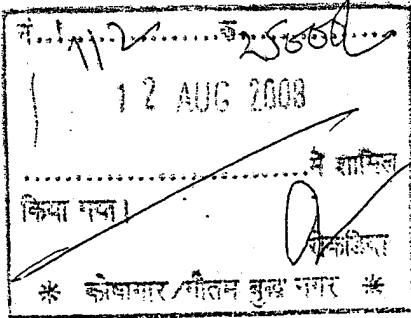 नं. 112 रु 25000
12 AUG 2008
....................में शामिल
किया गया।
रोकड़िया
* कोषागार/गौतम बुद्ध नगर *